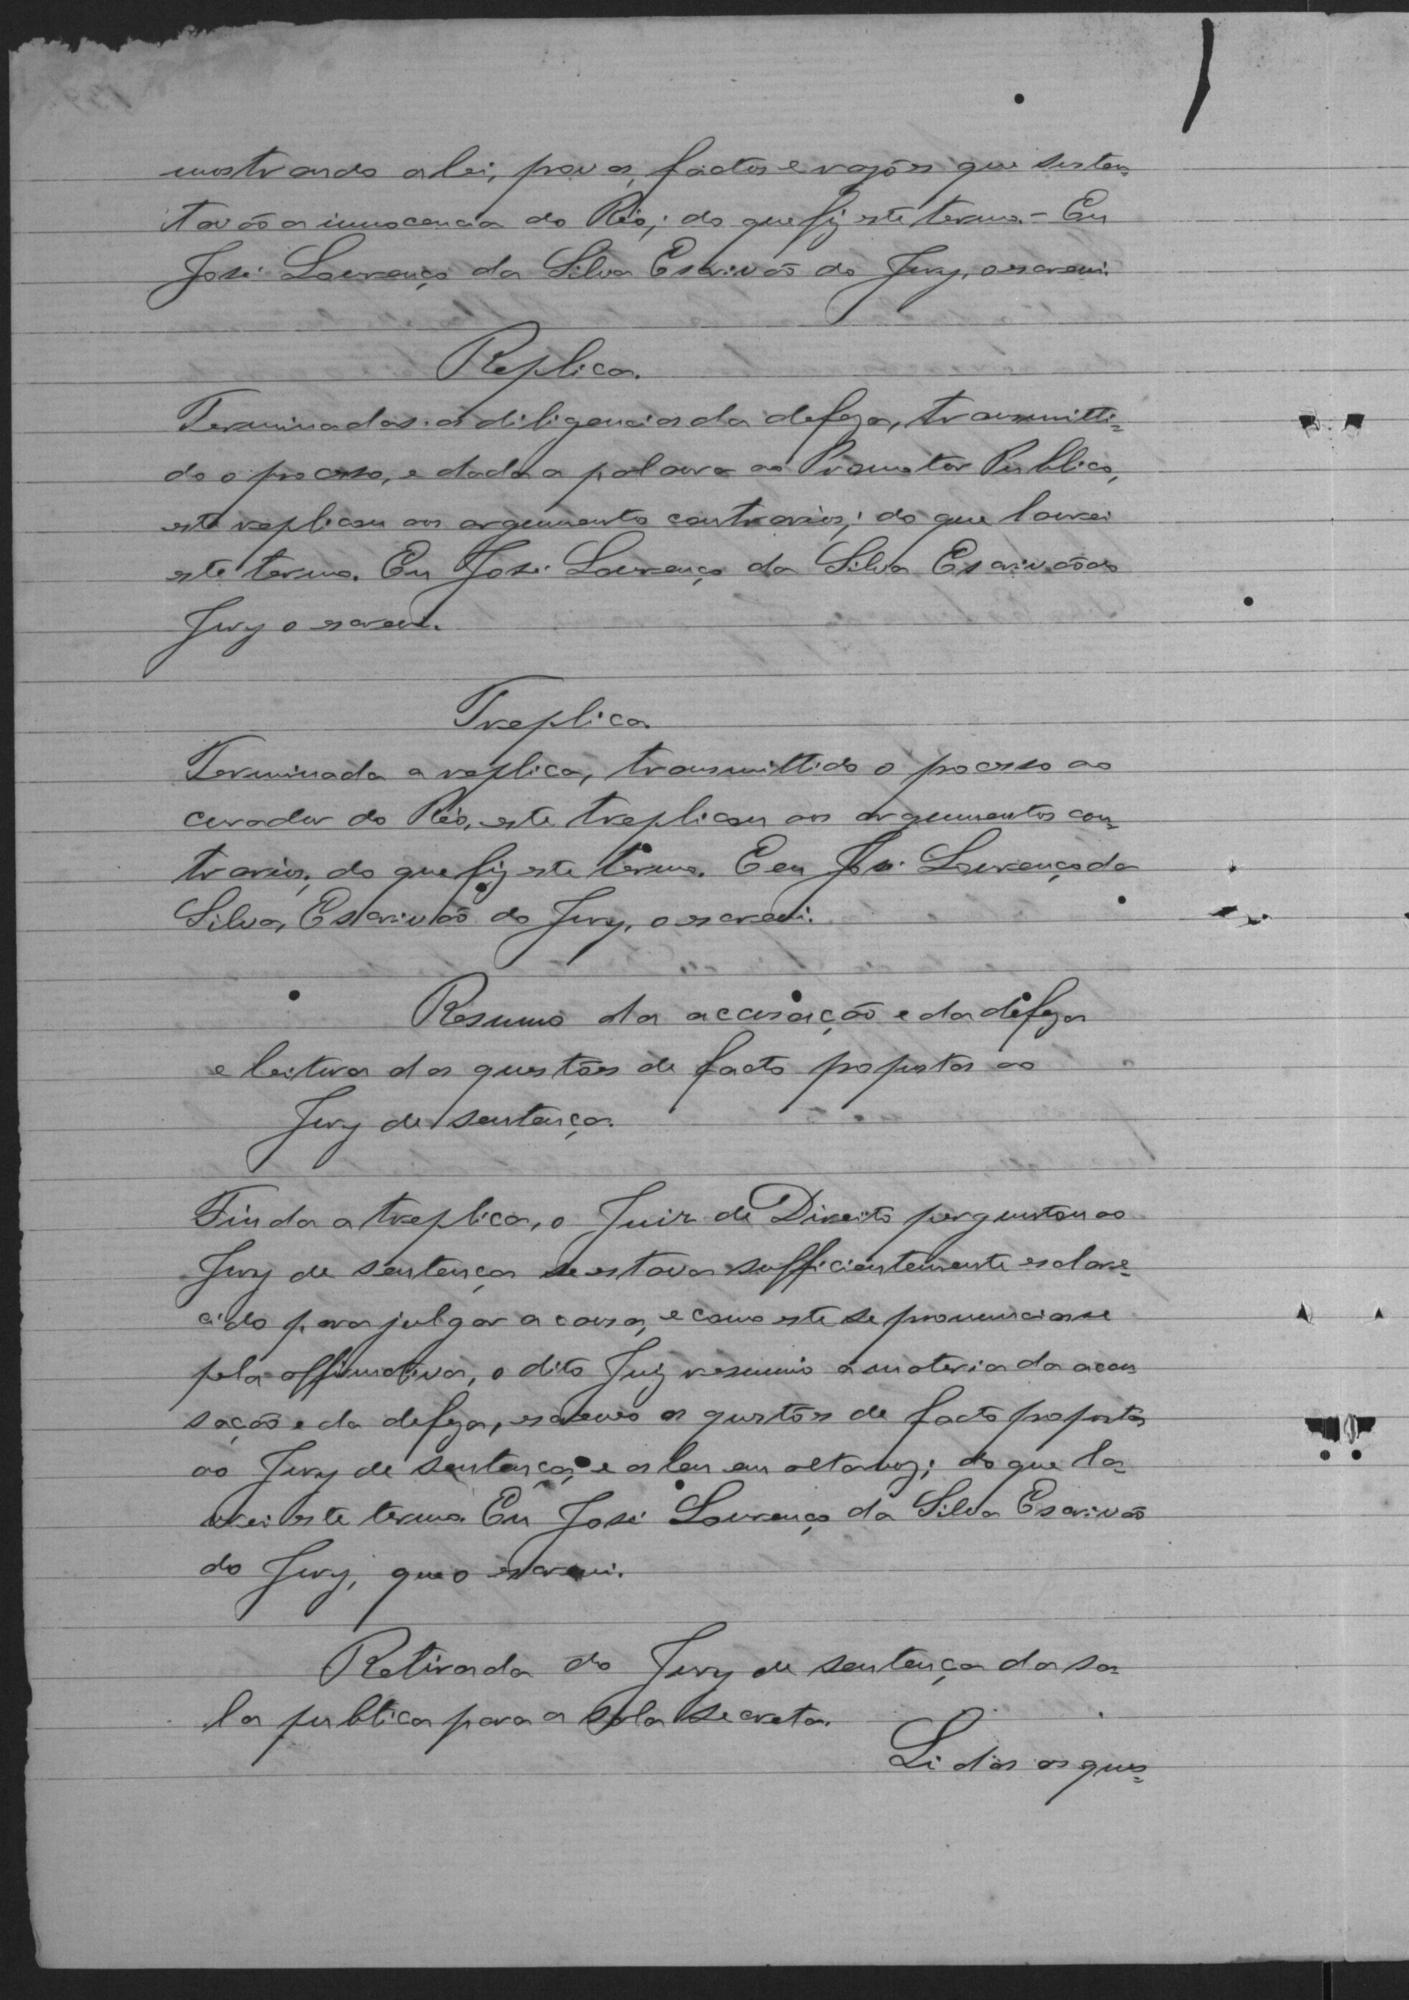 mostrando a lei, provas, factos e rasões que susten-
tavão a innocencia do Réo; do que fiz este termo. - Eu
José Lourenço da Silva Escrivão do Jury, o escrevi.
Replica.
Terminadas as diligencias da defeza, transmitti-
do o processo, e dada a palavra ao Promotor Publico,
este replicou aos argumentos contrarios; do que lavrei
este termo. Eu José Lourenço da Silva Escrivão do
Jury o escrevi.
Treplica.
Terminada a replica, transmittido o processo ao
curador do Réo, este treplicou aos argumentos con-
trarios, do que fiz este termo. E eu José Lourenço da
Silva, Escrivão do Jury, o escrevi.
Resumo da accusação e da defeza
e leitura das questões de facto propostas ao
Jury de sentença.
Finda a treplica, o Juiz de Direito perguntou ao
Jury de sentença se estava sufficientemente esclare-
cido para julgar a causa, e como este se pronunciasse
pela affirmativa, o dito Juiz resumio a materia da accu-
sação e da defeza, escreveo as questões de facto propostas
ao Jury de sentença, e as leu em alta voz; do que la-
vrei este termo. Eu José Lourenço da Silva Escrivão
do Jury, que o escrevi.
Retirada do Jury de sentença da sa-
la publica para a sala secreta.
Lidas as ques-